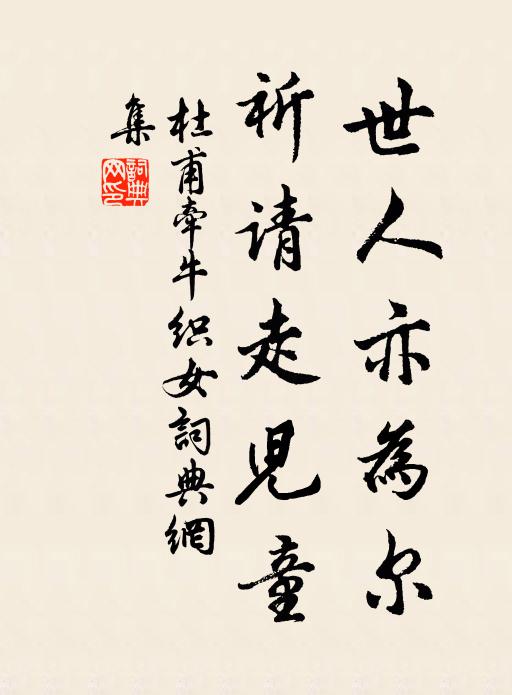 世人亦為尔
祈请走児童
杜甫牵牛织女詞典網
集
詞典
网印